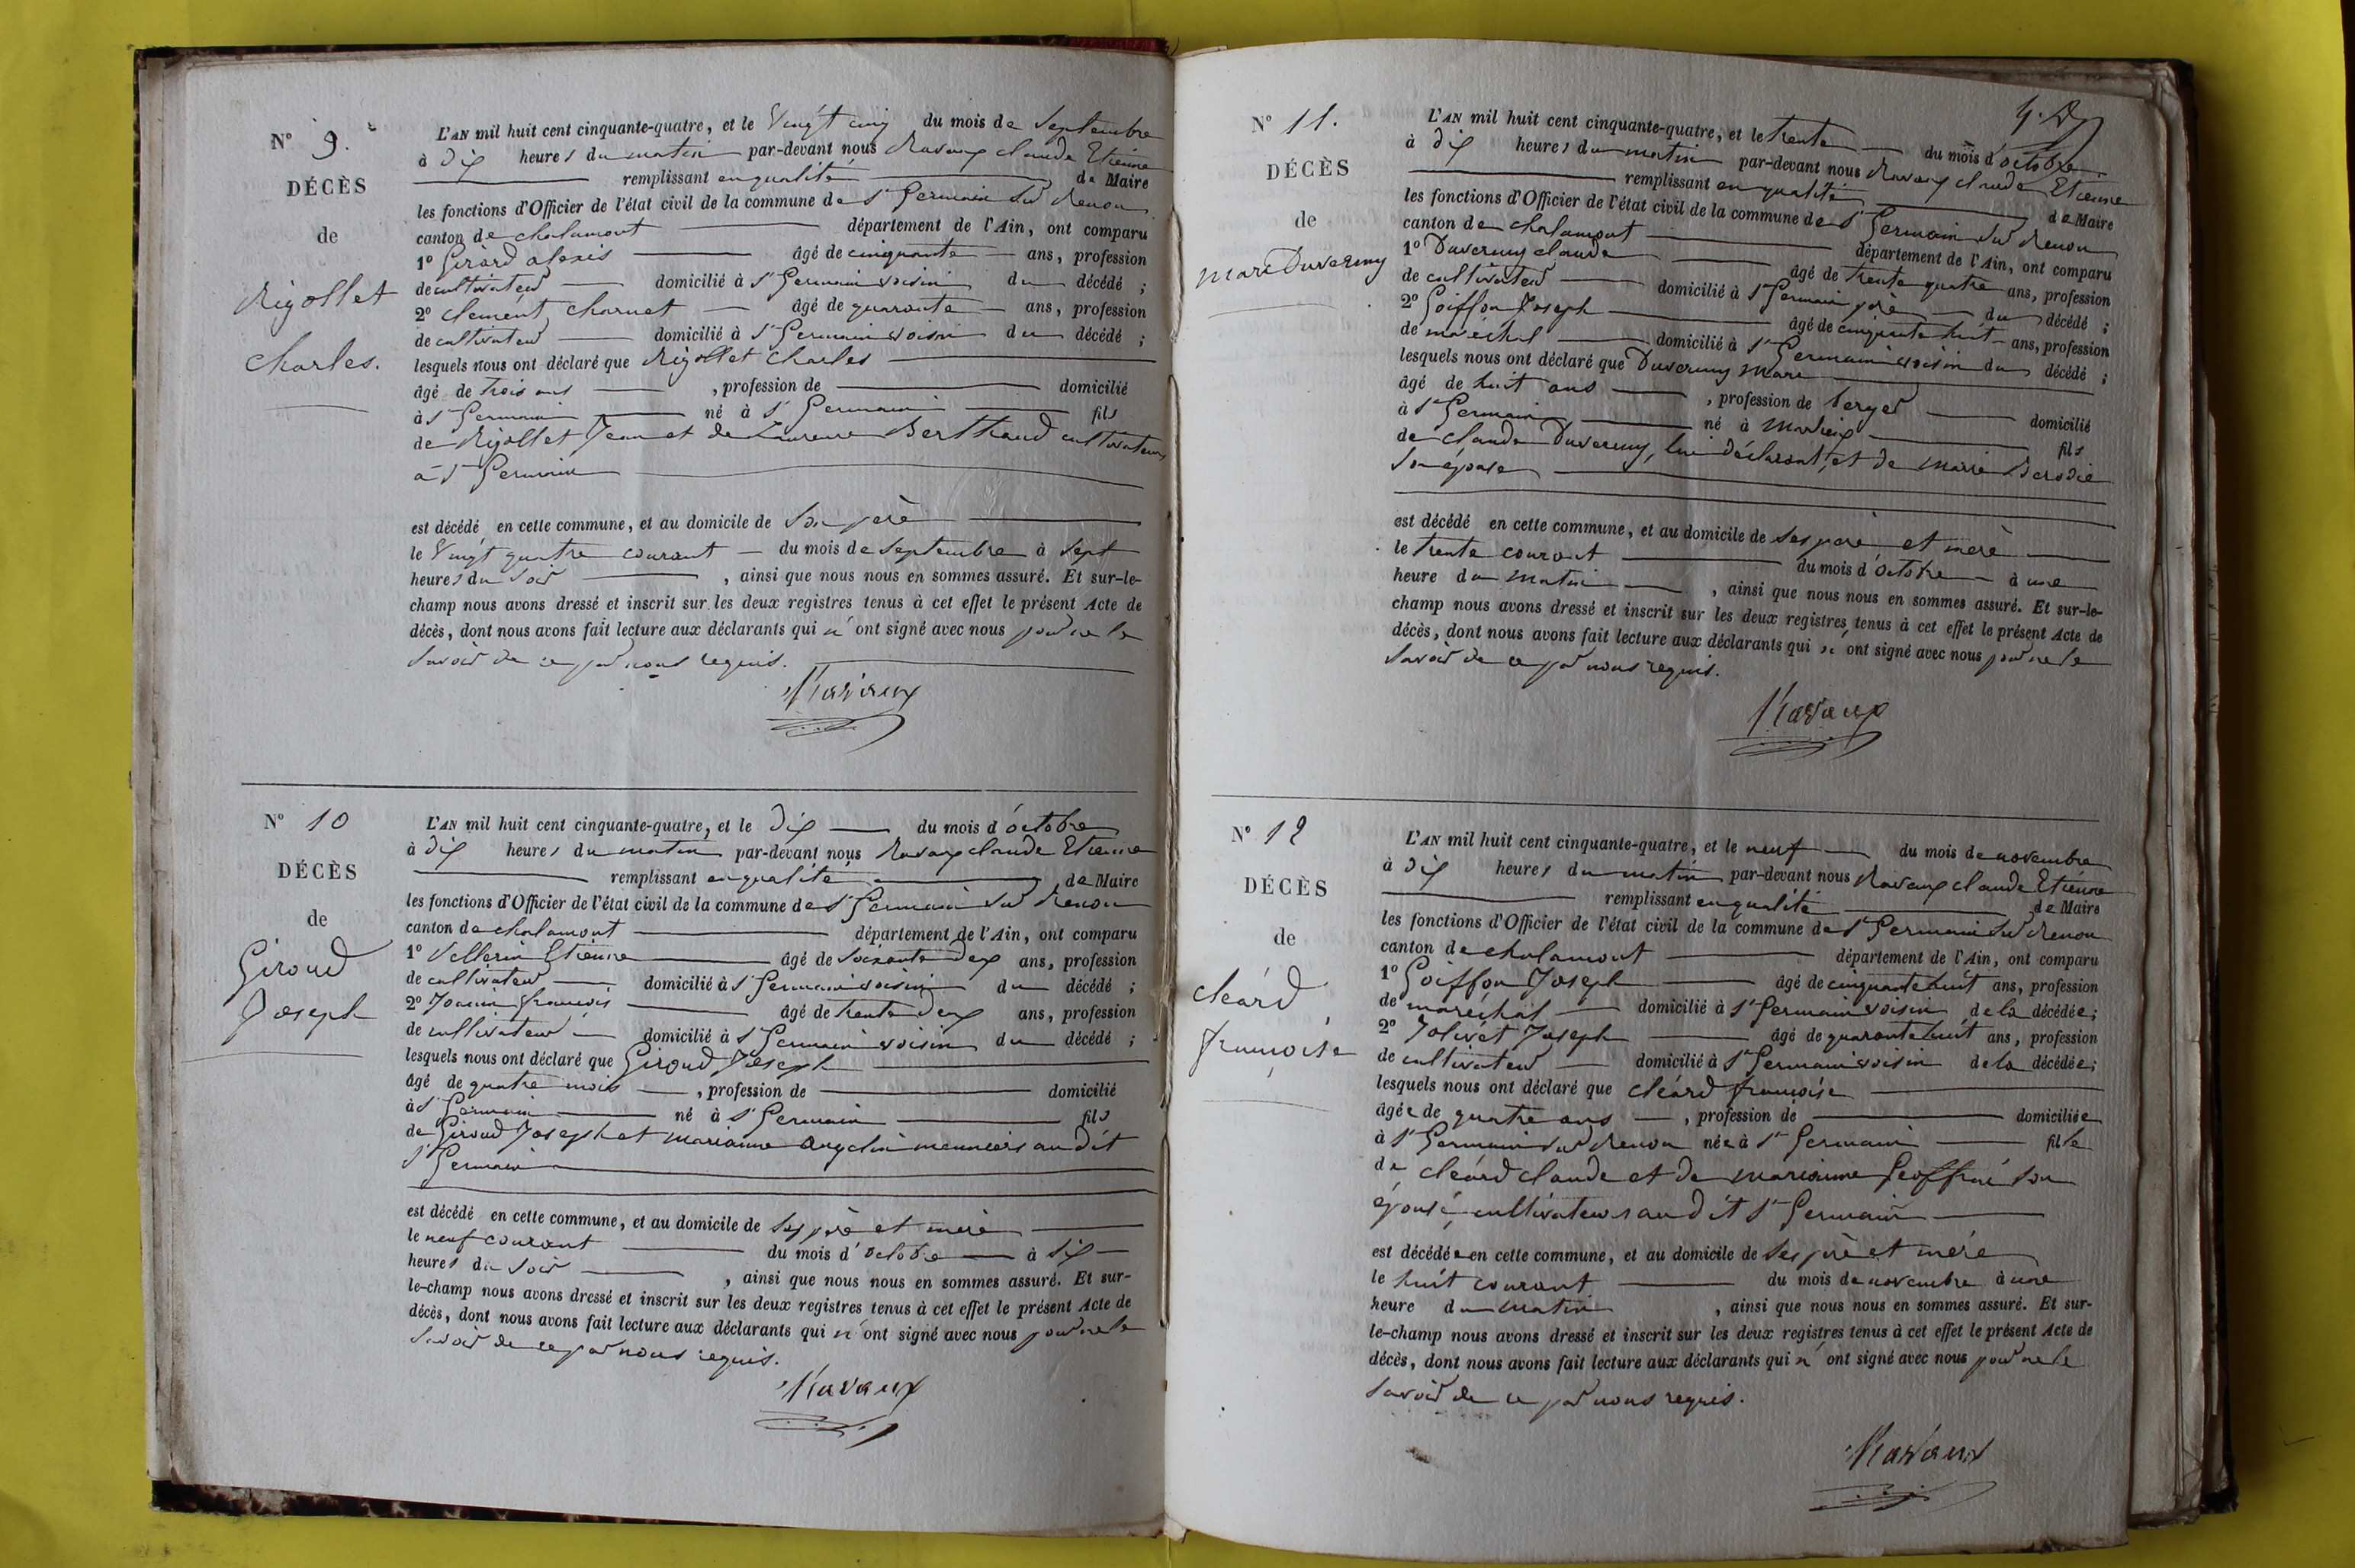 N° 9.
DÉCÈS
de
Rigollet
Charles.
L'AN mil huit cent cinquante-quatre, et le Vingt cinq du mois de Septembre
à dix heures du matin par-devant nous Ravaux claude Etienne
remplissant en qualité de Maire
les fonctions d'Officier de l'état civil de la commune de St Germain sur Renon
canton de chalamont département de l'Ain, ont comparu
1° Girard alexis âgé de cinquante ans, profession
de cultivateur domicilié à St Germain voisin du décédé ;
2° clement charnet âgé de quarante ans, profession
de cultivateur domicilié à St Germain voisin du décédé ;
lesquels nous ont déclaré que Rigollet Charles
âgé de trois ans , profession de domicilié
à St Germain né à St Germain fils
de Rigollet Jean et de Laurence Berthaud cultivateurs
à St Germain
est décédé en cette commune, et au domicile de Son père
le Vingt quatre courant du mois de Septembre à Sept
heures du Soir , ainsi que nous nous en sommes assuré. Et sur-le-
champ nous avons dressé et inscrit sur les deux registres tenus à cet effet le présent Acte de
décès, dont nous avons fait lecture aux déclarants qui n'ont signé avec nous pour ne le
Savoir de ce par nous requis.
Ravaux
N° 10
DÉCÈS
de
Giroud
Joseph
L'AN mil huit cent cinquante-quatre, et le dix du mois d'octobre
à dix heures du matin par-devant nous Ravaux claude Etienne
remplissant en qualité de Maire
les fonctions d'Officier de l'état civil de la commune de St Germain sur Renon
canton de chalamont département de l'Ain, ont comparu
1° Vellerin Etienne âgé de Soixante dix ans, profession
de cultivateur domicilié à St Germain voisin du décédé ;
2° françois âgé de trente deux ans, profession
de cultivateur domicilié à St Germain voisin du décédé ;
lesquels nous ont déclaré que Giroud Joseph
âgé de quatre mois , profession de domicilié
à St Germain né à St Germain fils
de Giroud Joseph et marianne meuniers au dit
St Germain
est décédé en cette commune, et au domicile de Ses père et mère
le neuf courant du mois d'octobre à dix
heures du Soir , ainsi que nous nous en sommes assuré. Et sur-
le-champ nous avons dressé et inscrit sur les deux registres tenus à cet effet le présent Acte de
décès, dont nous avons fait lecture aux déclarants qui n'ont signé avec nous pour ne le
Savoir de ce par nous requis.
Ravaux
N° 11.
DÉCÈS
de
Marc Duverny
L'AN mil huit cent cinquante-quatre, et le trente du mois d'octobre
à dix heures du matin par-devant nous Ravaux claude Etienne
remplissant en qualité de Maire
les fonctions d'Officier de l'état civil de la commune de St Germain sur Renon
canton de chalamont département de l'Ain, ont comparu
1° Duverny claude âgé de trente quatre ans, profession
de cultivateur domicilié à St Germain père du décédé ;
2° Goiffon Joseph âgé de cinquante huit ans, profession
de maréchal domicilié à St Germain voisin du décédé ;
lesquels nous ont déclaré que Duverny Marc
âgé de huit ans , profession de berger domicilié
à St Germain né à Marlieux fils
de claude Duverny, lui déclarant, et de Marie Berodié
Son épouse
est décédé en cette commune, et au domicile de Ses père et mère
le trente courant du mois d'octobre à une
heure du matin , ainsi que nous nous en sommes assuré. Et sur-le-
champ nous avons dressé et inscrit sur les deux registres tenus à cet effet le présent Acte de
décès, dont nous avons fait lecture aux déclarants qui n'ont signé avec nous pour ne le
Savoir de ce par nous requis.
Ravaux
N° 12
DÉCÈS
de
cléard
françoise
L'AN mil huit cent cinquante-quatre, et le neuf du mois de novembre
à dix heures du matin par-devant nous Ravaux claude Etienne
remplissant en qualité de Maire
les fonctions d'Officier de l'état civil de la commune de St Germain sur Renon
canton de chalamont département de l'Ain, ont comparu
1° Goiffon Joseph âgé de cinquante huit ans, profession
de maréchal domicilié à St Germain voisin de la décédée;
2° Jolivet Joseph âgé de quarante huit ans, profession
de cultivateur domicilié à St Germain voisin de la décédée;
lesquels nous ont déclaré que cléard françoise
âgée de quatre ans , profession de domiciliée
à St Germain sur Renon née à St Germain fille
de cléard claude et de marianne Geoffrai son
épouse cultivateurs au dit St Germain
est décédée en cette commune, et au domicile de Ses père et mère
le huit courant du mois de novembre à une
heure du matin , ainsi que nous nous en sommes assuré. Et sur-
le-champ nous avons dressé et inscrit sur les deux registres tenus à cet effet le présent Acte de
décès, dont nous avons fait lecture aux déclarants qui n'ont signé avec nous pour ne le
Savoir de ce par nous requis.
Ravaux